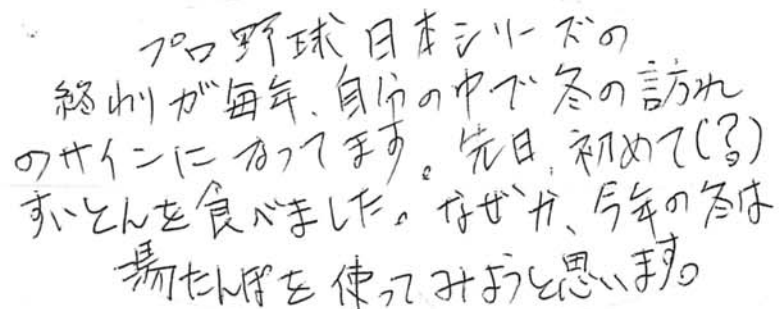 プロ野球日本シリーズの
終わりが毎年、自分の中で冬の訪れ
のサインになってます。先日、初めて(?)
すいとんを食べました。なぜか、今年の冬は
湯たんぽを使ってみようと思います。